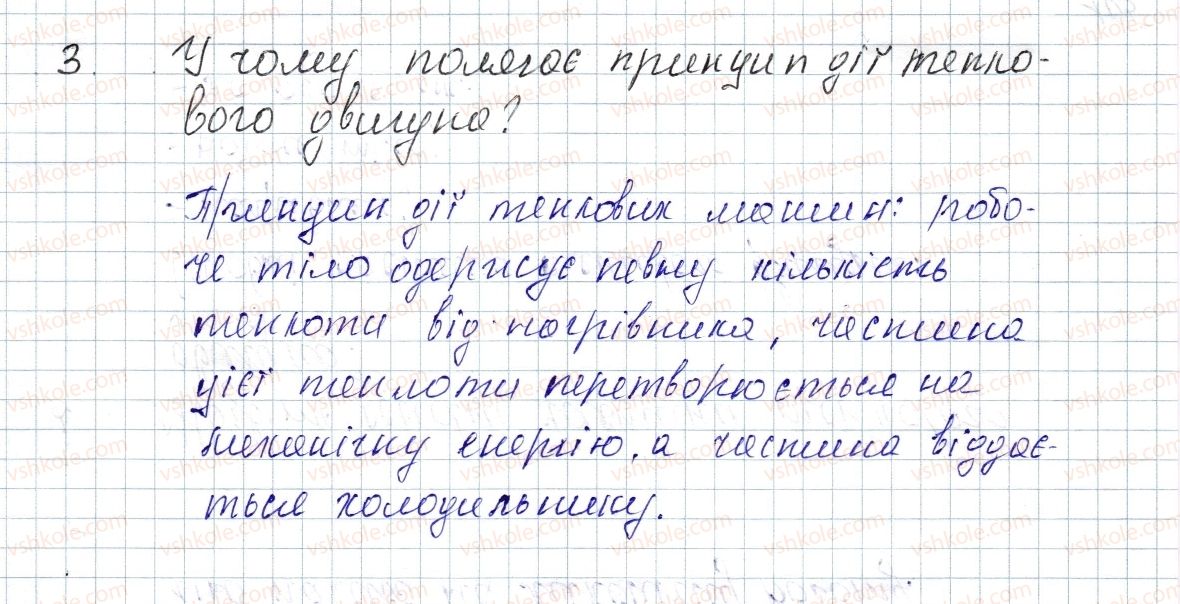 3. У чому полягає принцип дії тепло-
вого двигуна?
Принцип дії теплових машин: робо-
че тіло одержує певну кількість
теплоти від нагрівника, частина
цієї теплоти перетворюється на
механічну енергію, а частина віддає-
ться холодильнику.